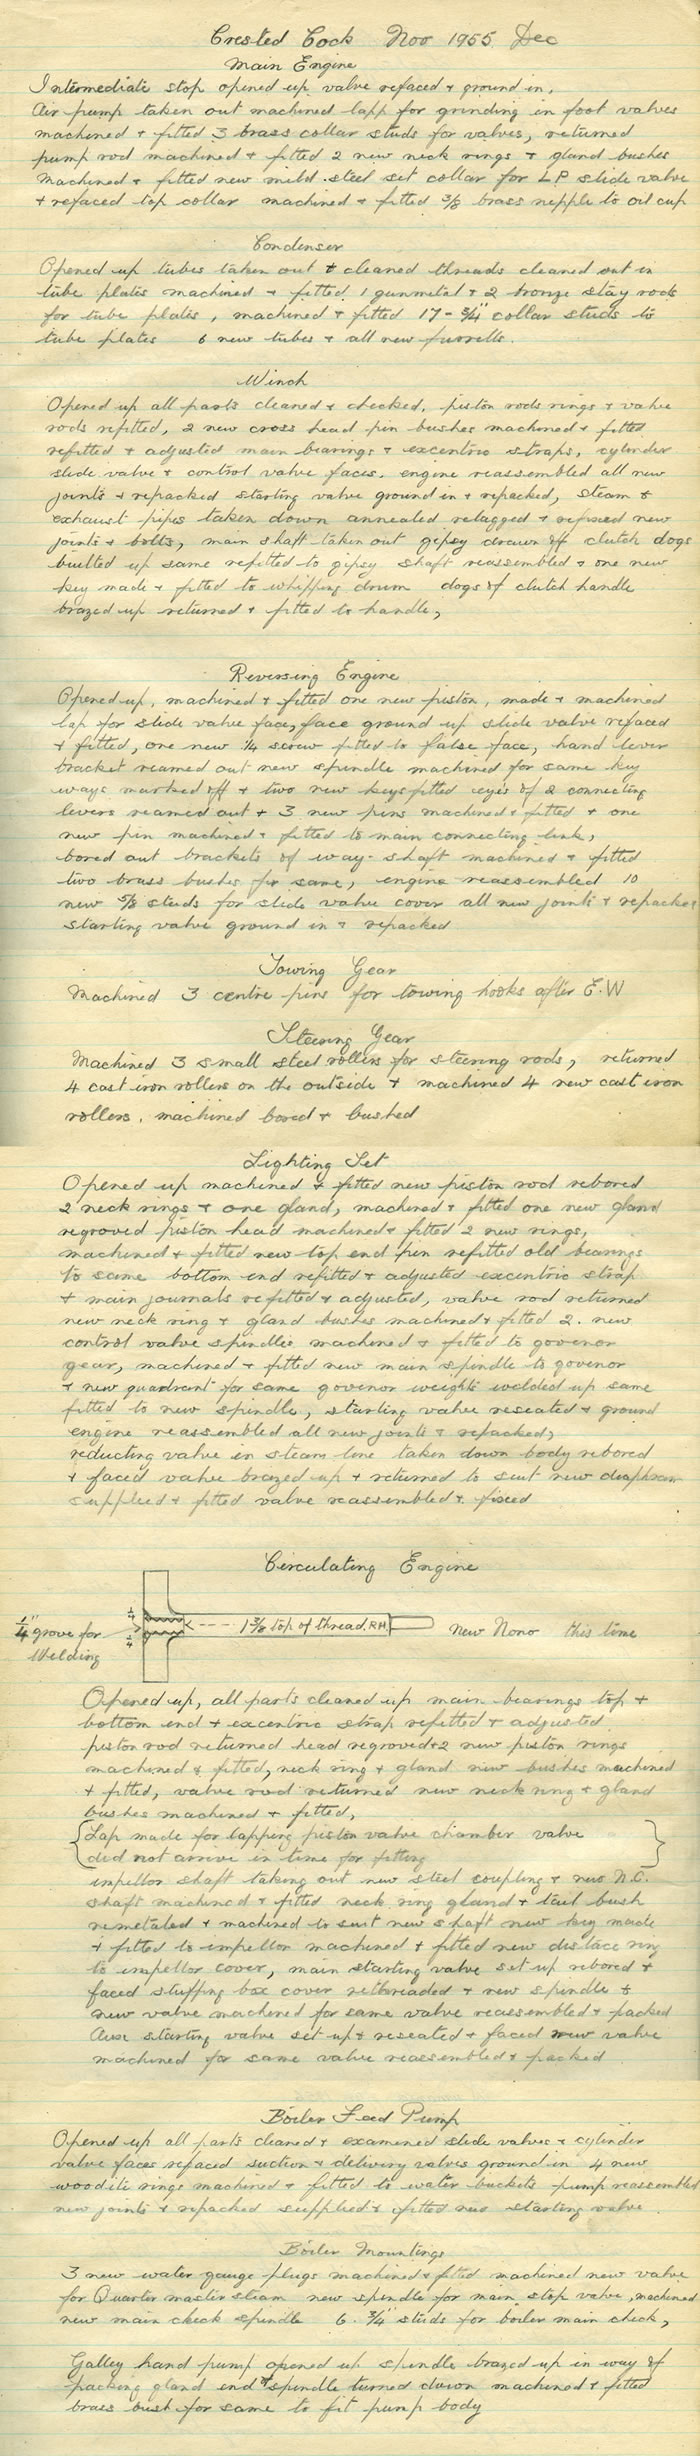 Crested Cock Nov 1955 Dec
Main Engine
Intermediate stop opened up valve refaced & ground in,
Air pump taken out machined lapp for grinding in foot valves
machined & fitted 3 brass collar studs for valves, returned
pump rod machined & fitted 2 new neck rings & gland bushes
Machined & fitted new mild steel set collar for LP slide valve
& refaced top collar machined & fitted 3/8 brass nepple to oil cup
Condenser
Opened up tubes taken out & cleaned threads cleaned out in
tube plates machined & fitted 1 gunmetal & 2 bronze stay rods
for tube plates, machined & fitted 17 - 3/4" collar studs to
tube plates 6 new tubes & all new furrells.
Winch
Opened up all parts cleaned & checked, piston rods rings & valve
rods refitted, 2 new cross head pin bushes machined & fitted
refitted & adjusted main bearings & excentric straps, cylinder
slide valve & control valve faces. engine reassembled all new
joints & repacked starting valve ground in & repacked, steam &
exhaust pipes taken down annealed relagged & refixed new
joints & bolts, main shaft taken out gipsy drawn off clutch dogs
builted up same refitted to gipsy shaft reassembled & one new
key made & fitted to whipping drum dogs of clutch handle
brazed up returned & fitted to handle,
Reversing Engine
Opened up, machined & fitted one new piston, made & machined
lap for slide valve face, face ground up slide valve refaced
& fitted, one new 1/4 screw fitted to false face, hand lever
bracket reamed out new spindle machined for same key
ways marked off & two new keys fitted eyes of 2 connecting
levers reamed out & 3 new pins machined & fitted & one
new pin machined & fitted to main connecting link,
bored out brackets of way-shaft machined & fitted
two brass bushes for same, engine reassembled 10
new 5/8 studs for slide valve cover all new joints & repacked
starting valve ground in & repacked
Towing Gear
Machined 3 centre pins for towing hooks after E.W
Steering Gear
Machined 3 small steel rollers for steering rods, returned
4 cast iron rollers on the outside & machined 4 new cast iron
rollers. machined bored & bushed
Lighting Set
Opened up machined & fitted new piston rod rebored
2 neck rings & one gland, machined & fitted one new gland
regroved piston head machined & fitted 2 new rings,
machined & fitted new top end pin refitted old bearings
to same bottom end refitted & adjusted excentric strap
& main journals refitted & adjusted, valve rod returned
new neck ring & gland bushes machined & fitted 2. new
control valve spindles machined & fitted to govenor
gear, machined & fitted new main spindle to govenor
& new quadrent for same govenor weights welded up same
fitted to new spindle, starting valve reseated & ground
engine reassembled all new joints & repacked,
reducting valve in steam line taken down body rebored
& faced valve brazed up & returned to suit new diaphram
supplied & fitted valve reassembled & fixed
Circulating Engine
1/4" grove for
Welding
1/4
1/4
1 3/8 top of thread. RH
New Nono this time
Opened up, all parts cleaned up main bearings top &
bottom end & excentric strap refitted & adjusted
piston rod returned head regroved & 2 new piston rings
machined & fitted, neck ring & gland new bushes machined
& fitted, valve rod returned new neck ring & gland
bushes machined & fitted,
Lap made for lapping piston valve chamber valve
did not arrive in time for fitting
impellor shaft taking out new steel coupling & new N.C.
shaft machined & fitted neck ring gland & tail bush
remetaled & machined to suit new shaft new key made
& fitted to impellor machined & fitted new distace ring
to impellor cover, main starting valve set up rebored &
faced stuffing box cover rethreaded & new spindle &
new valve machined for same valve reassembled & packed
Aux starting valve set up & reseated & faced new valve
machined for same valve reassembled & packed
Boiler Feed Pump
Opened up all parts cleaned & examined slide valves & cylinder
valve faces refaced suction & delivery valves ground in 4 new
woodite rings machined & fitted to water buckets pump reassembled
new joints & repacked supplied & fitted new starting valve.
Boiler Mountings
3 new water gauge plugs machined & fitted machined new valve
for Quarter master steam new spindle for main stop valve, machined
new main check spindle 6. 3/4" studs for boiler main check,
Galley hand pump opened up spindle brazed up in way of
packing gland end & spindle turned down machined & fitted
brass bush for same to fit pump body